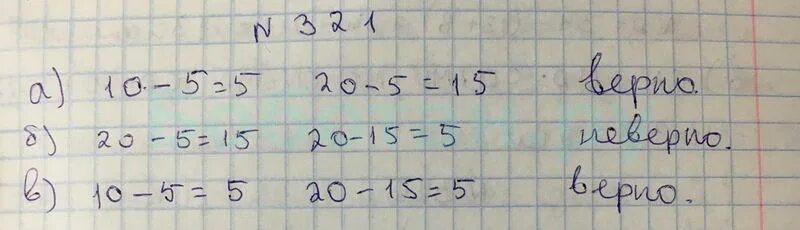 N 321
а) 10 - 5 = 5 20 - 5 = 15 верно.
б) 20 - 5 = 15 20 - 15 = 5 неверно.
в) 10 - 5 = 5 20 - 15 = 5 верно.